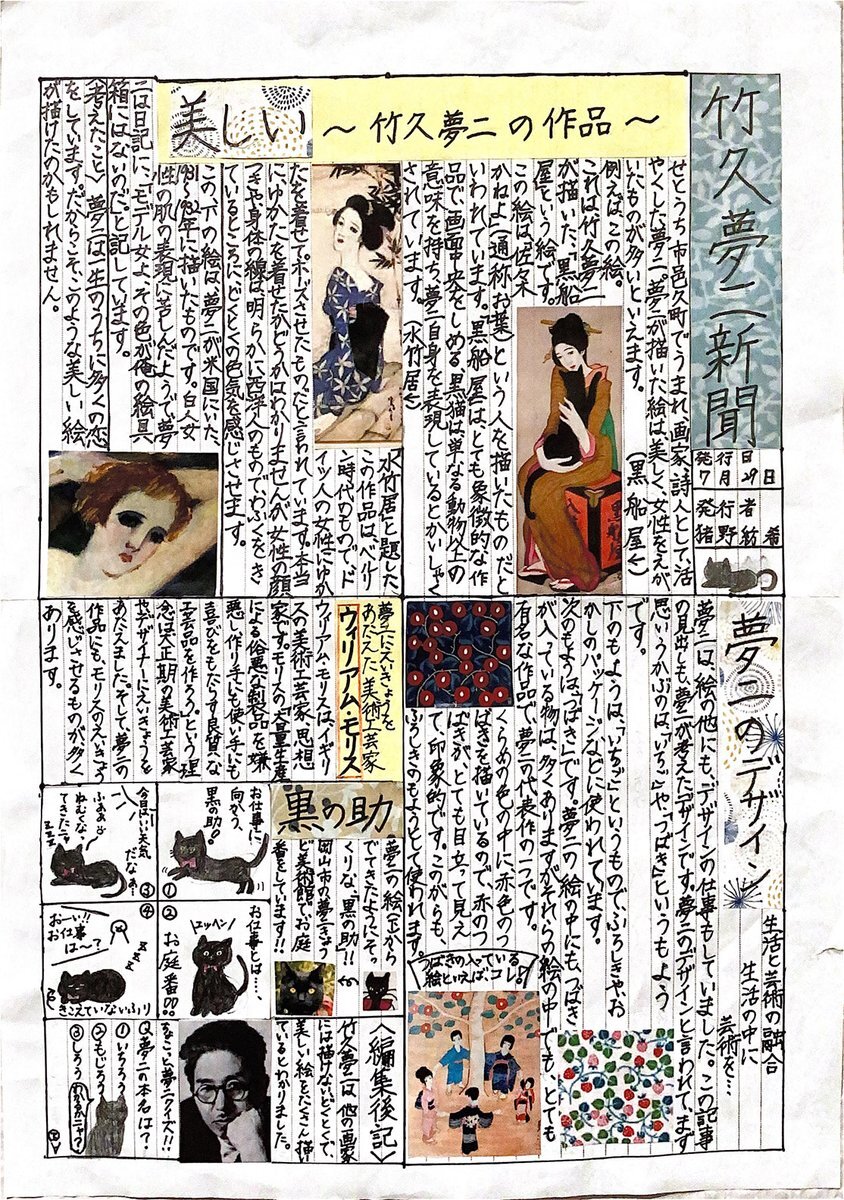 竹久夢二新聞
発行日
7月29日
発行者
猪野紡希
美しい ～竹久夢二の作品～
せとうち市邑久町でうまれ、画家、詩人として活
やくした夢二。夢二が描いた絵は美しく、女性をえが
いたものが多いといえます。
(黒船屋←)
例えば、この絵。
これは竹久夢二
が描いた、「黒船
屋」という絵です。
この絵は、「佐々木
かねよ(通称お葉)」という人を描いたものだと
いわれています。「黒船屋」は、とても象徴的な作
品で、画面中央をしめる、黒猫は単なる動物以上の
意味を持ち、夢二自身を表現しているとかいしゃく
されています。
(水竹居←)
「水竹居」と題した
この作品は、ベルリ
ン時代のもので、ド
イツ人の女性にゆか
たを着せてポーズさせたものだと言われています。本当
にゆかたを着せたかどうかはわかりませんが、女性の顔
つきや身体の線は、明らかに西洋人のものでわふくをき
ているところに、どくとくの色気を感じさせます。
この、下の絵は、夢二が米国にいた、
1931~1932年に描いたものです。白人女
性の肌の表現に苦しんだようで、夢
二は日記に、「モデル女よ、その色が俺の絵具
箱にはないのだ」と記しています。
〈考えたこと〉 夢二は、一生のうちに多くの恋
をしています。だからこそ、このような美しい絵
が描けたのかもしれません。
夢二のデザイン
生活と芸術の融合
生活の中に
芸術を…
夢二は、絵の他にも、デザインの仕事もしていました。この記事
の見出しも、夢二が考えたデザインです。夢二のデザインと言われて、まず
思いうかぶのは、「いちご」や、「つばき」というもよう
です。
下のもようは、「いちご」というもので、ふろしきや、お
かしのパッケージなどに使われています。
次のもようは、「つばき」です。夢二の絵の中にも、つばき
が入っている物は、多くありますがそれらの絵の中でも、とても
有名な作品で、夢二の代表作の一つです。
くらめの色の中に赤色のつ
ばきを描いているので、赤のつ
ばきが、とても目立って見え
て、印象的です。このがらも、
ふろしきのもようとして使われます。
つばきの入っている
絵といえば、コレ。
夢二にえいきょうを
あたえた美術工芸家
ウィリアム・モリス
ウィリアム・モリスは、イギリ
スの美術工芸家、思想
家です。モリスの、「大量生産
による俗悪な製品を嫌
悪し、作り手にも使い手にも
喜びをもたらす良質な
工芸品を作ろう。」という理
念は、大正期の美術工芸家
やデザイナーにえいきょうを
あたえました。そして、夢二の
作品にも、モリスのえいきょう
を感じさせるものが多く
あります。
黒の助
夢二の絵(下)から
でてきたようにそっ
くりな、「黒の助!!」
岡山市の夢二きょう
ど美術館で、お庭
番をしています!!
お仕事に
向かう、
黒の助♪
①
お仕事とは…、
ニャッヘン
②お庭番!!
今日はいい天気
だなぁ~
ふああ
ねむくなっ
てきたニャ
zzz
③
④
おーい!!
お仕事
は~?
zzz
きこえていないふり
〈編集後記〉
竹久夢二は、他の画家
には描けない、どくとくで、
美しい絵をたくさん描い
ているとわかりました。
まなこと夢二クイズ!!
Q.夢二の本名は?
①いちろう
②もじろう
③しろう
わかるかニャ?